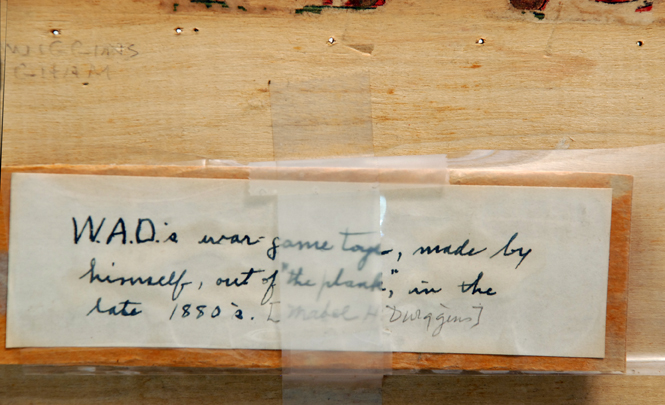 WIGGINS
W.A.D.'s war-game toys, made by
himself, out of "the plank," in the
late 1880's. [Mabel H Dwiggins]